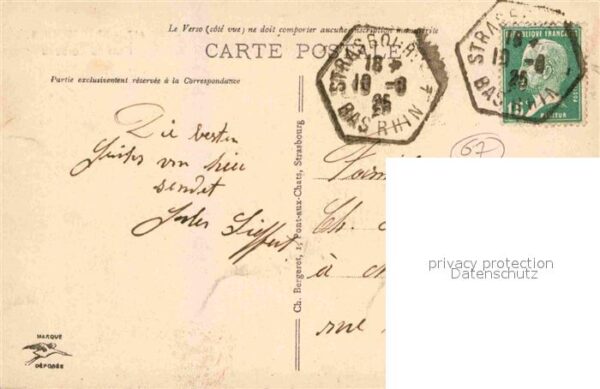 Le Verso (côté vue) ne doit comporter aucune inscription manuscrite
CARTE POSTALE
Partie exclusivement réservée à la Correspondance
STRASBOURG
18
10 - 9
25
BAS RHIN
STRASB
18
10 - 9
25
BAS RHIN
REPUBLIQUE FRANÇAISE
POSTES
15
PASTEUR
67
Die besten
Grüße von hier
sendet
Jules Sieffert
Fami
Ch.
à
rue
Ch. Bergeret, 1, Pont-aux-Chats, Strasbourg
privacy protection
Datenschutz
MARQUE
DÉPOSÉE